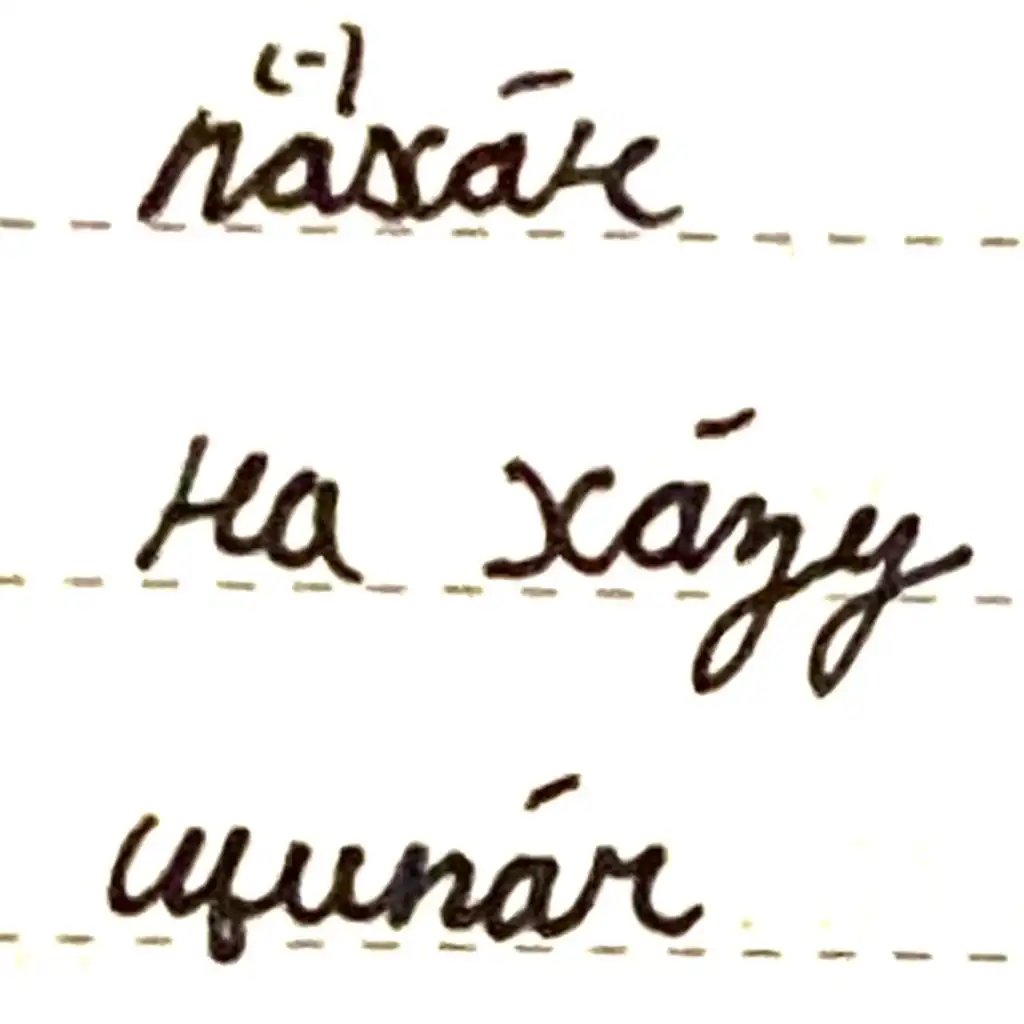 паха́н
на ха́зу
щипа́ч